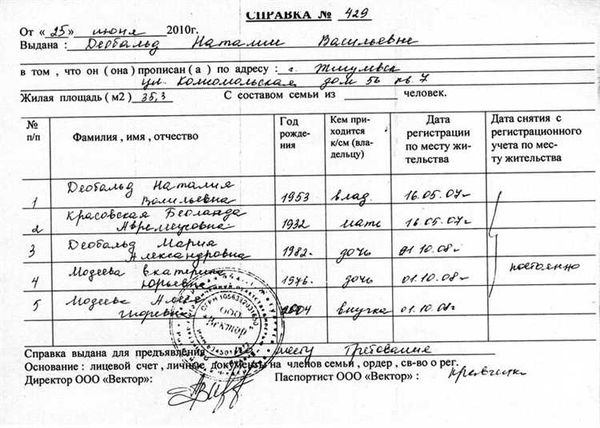 СПРАВКА № 429
От « 25 » июня 2010г.
Выдана : Деобальд Наталии Васильевне
в том , что он ( она ) прописан ( а ) по адресу : г.
ул. Комсомольская дом 56 кв. 7
Жилая площадь ( м2 ) 35,3 С составом семьи из человек.
№ п/п Фамилия , имя , отчество Год рожде-ния Кем при-ходится к/см (вла-дельцу) Дата регистрации по месту жи-тельства Дата снятия с регистрационного учета по мес-ту жительства
1 Деобальд Наталия Васильевна 1953 влад. 16.05.07г
2 Красовская 1932 мать 16.05.07г
3 Деобальд Мария Александровна 1982 дочь 01.10.08г
постоянно
4 Модеева Екатерина Юрьевна 1976 дочь 01.10.08г
5 Модеева 2004 внучка 01.10.08г
ООО "Вектор"
Справка выдана для предъявления по месту требования
Основание : лицевой счет , личные документы на членов семьи , ордер , св-во о рег.
Директор ООО «Вектор» : Паспортист ООО «Вектор» :